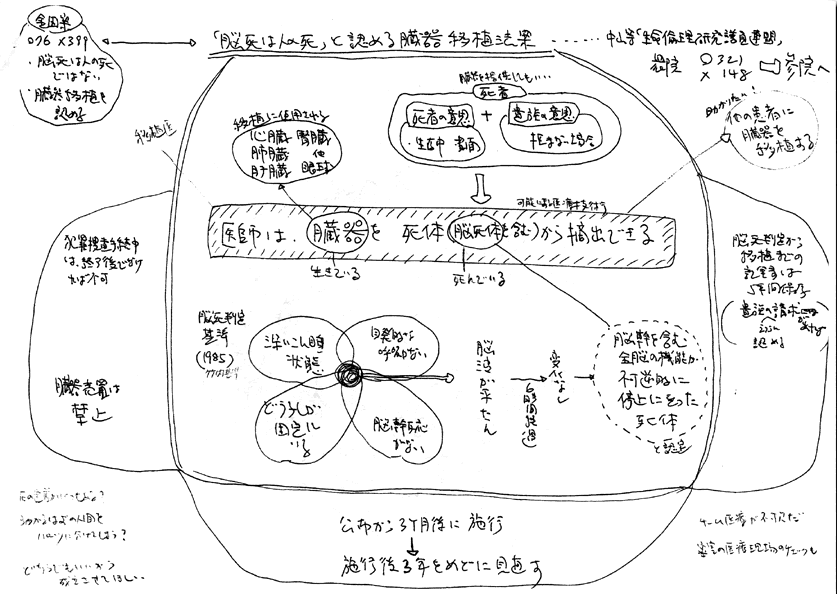 金田案
○76 ×399
・脳死は人の死
ではない
・臓器移植を
認める
「脳死は人の死」と認める臓器移植法案
中山等「生命倫理研究議員連盟」
衆院 ○321
×148
参院へ
助かりたい!
他の患者に
臓器を
移植する
移植医
移植に使用される
心臓 腎臓
肺臓 他
肝臓 眼球
臓器を提供してもいい…
死者
死者の意思
・生存中 書面
+
遺族の意思
拒まない場合
医師は、臓器を 死体(脳死体を含む)から摘出できる
生きている
死んでいる
犯罪捜査手続中
は、終了後でなけ
れば不可
臓器売買は
禁止
脳死判定
基準
(1985)
深いこん睡
状態
自発的な
呼吸がない
どうこうが
固定して
いる
脳幹反応
がない
脳波が平たん
(6時間経過)
変化なし
脳幹を含む
全脳の機能が
不可逆的に
停止に至った
死体
と認定
脳死判定から
移植までの
記録は
5年間保存
遺族の請求
認める
公布から3ヶ月後に施行
施行後3年をめどに見直す
どうでもいいから
死なせてほしい…
チーム医療が不可欠だ